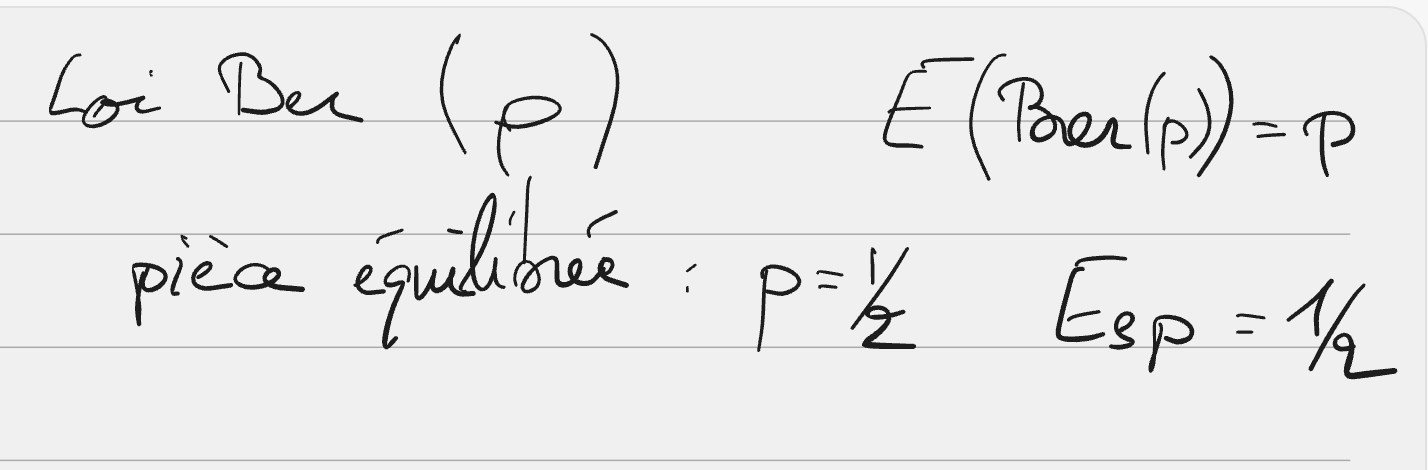 Loi Ber (p) E(Ber(p)) = p
pièce équilibrée : p = 1/2 Esp = 1/2